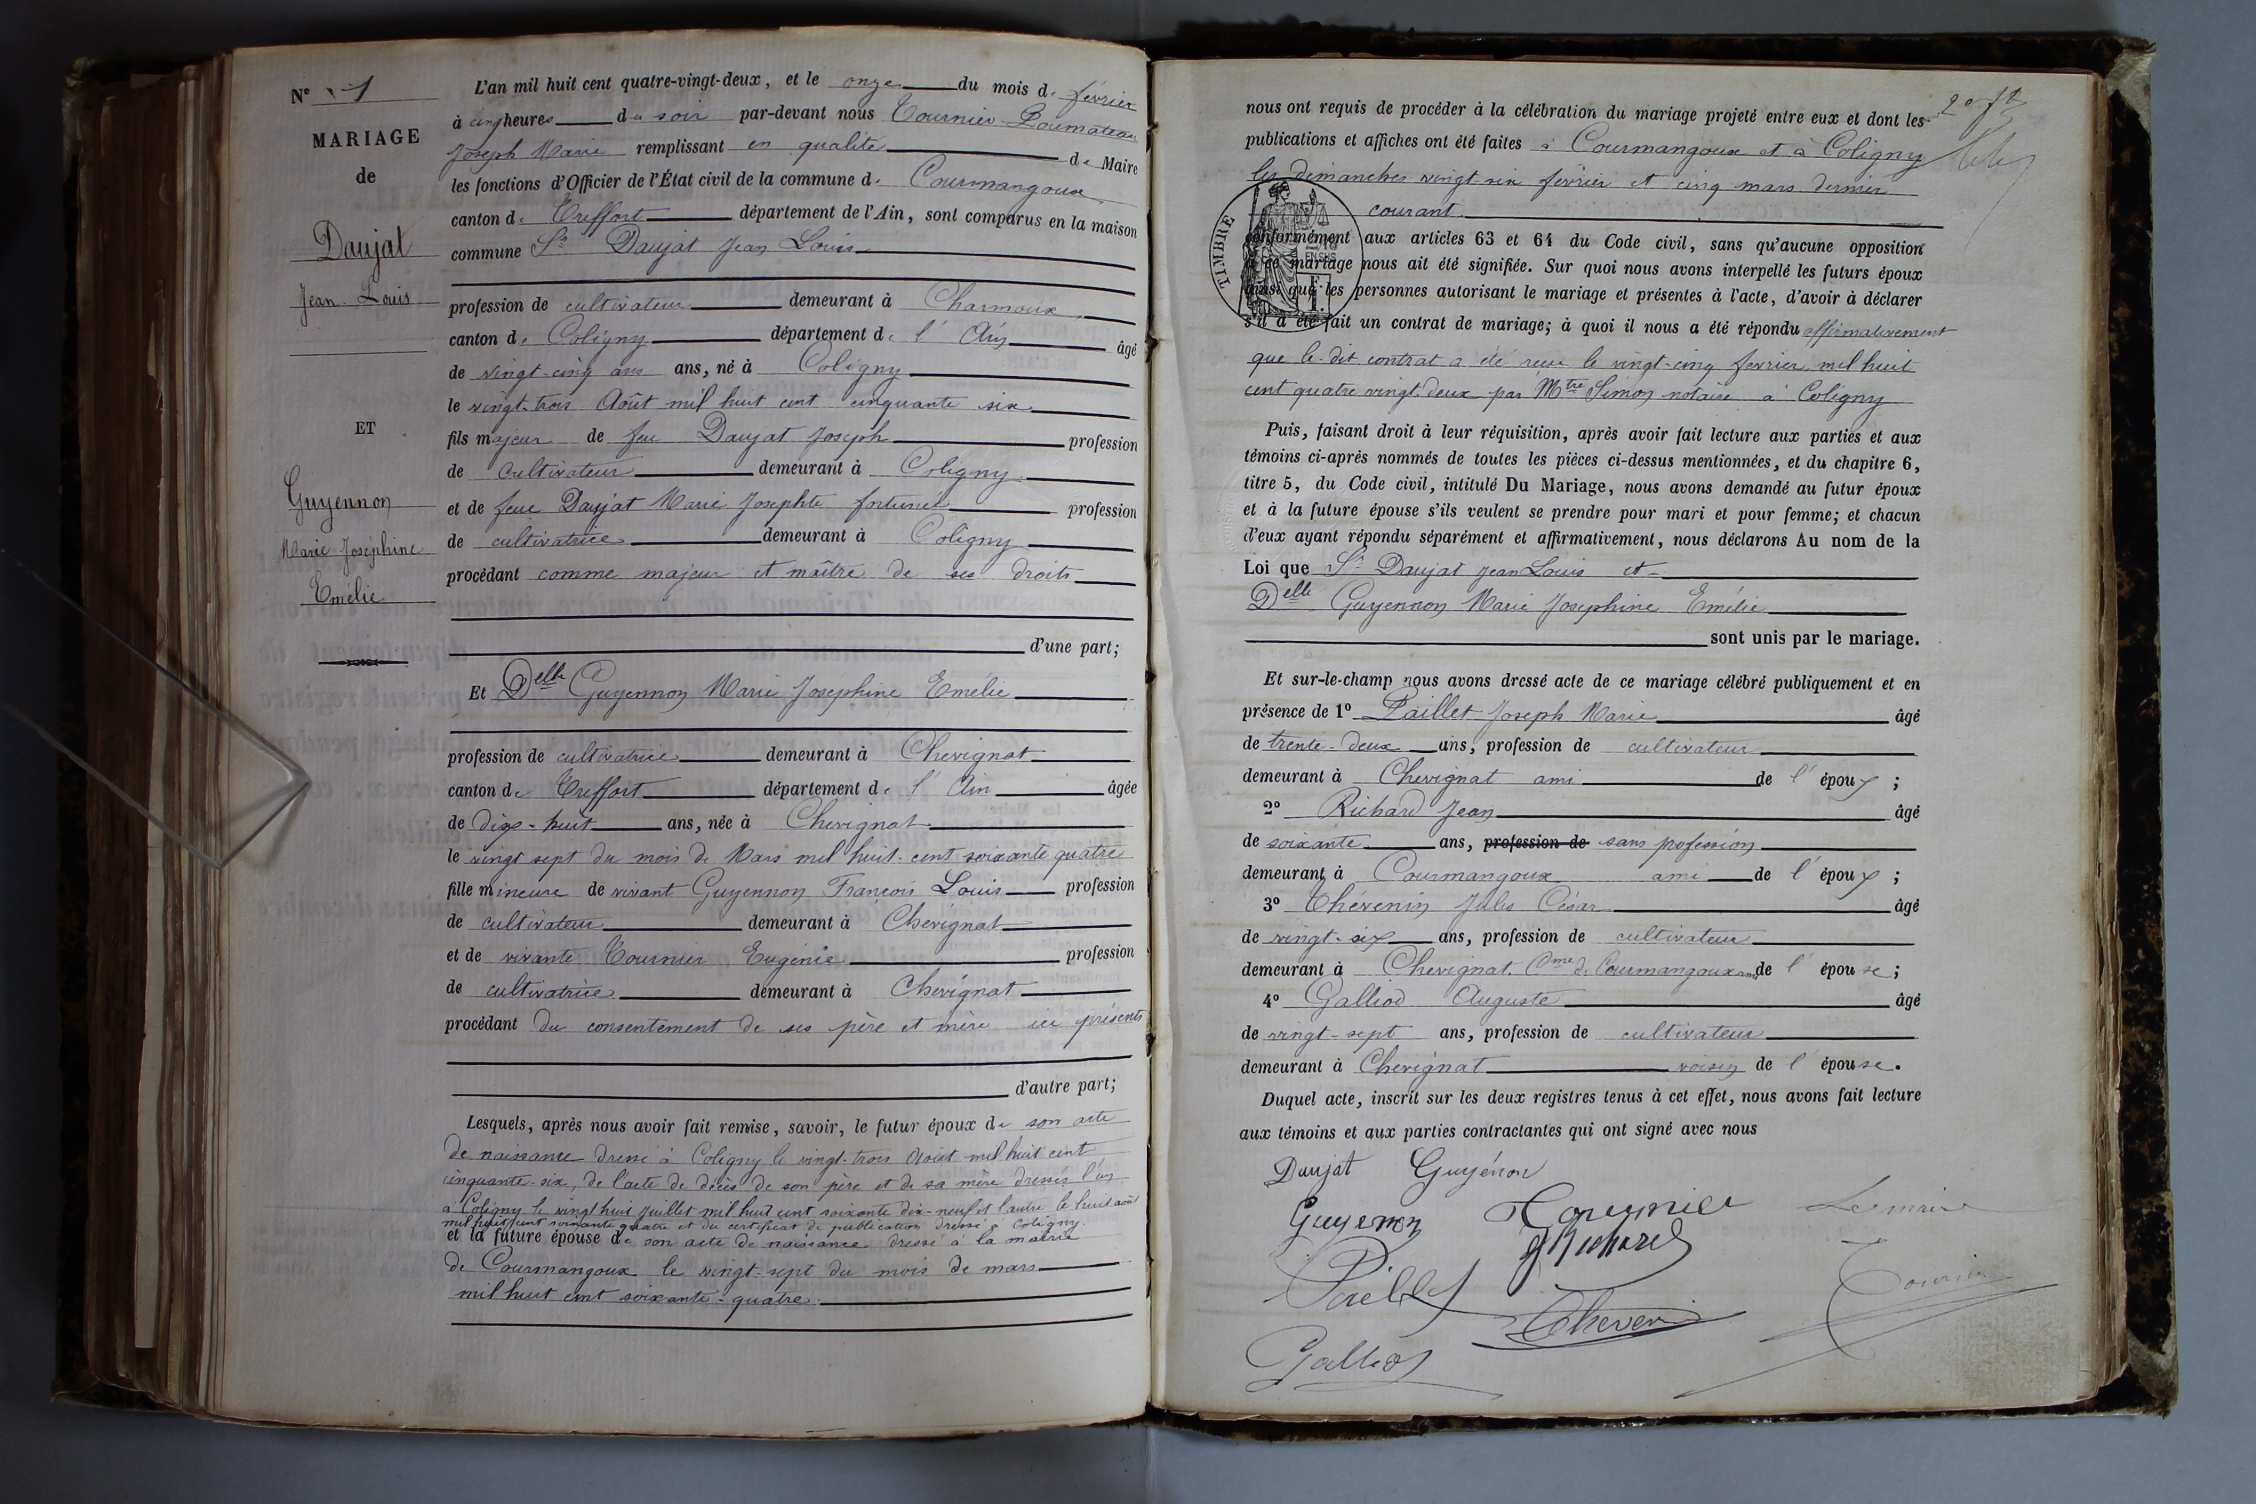 N° 1
MARIAGE
de
Daujat
Jean Louis
ET
Guyennon
Marie Joséphine
Emélie
L'an mil huit cent quatre-vingt-deux, et le onze du mois de février
à cinq heures du soir par-devant nous Tournier
Joseph Marie remplissant en qualité de Maire
les fonctions d'Officier de l'État civil de la commune de Courmangoux
canton de Treffort département de l'Ain, sont comparus en la maison
commune Sr Daujat Jean Louis
profession de cultivateur demeurant à Charmoux
canton de Coligny département de l'Ain âgé
de vingt-cinq ans ans, né à Coligny
le vingt-trois Août mil huit cent cinquante six
fils majeur de feu Daujat Joseph profession
de cultivateur demeurant à Coligny
et de feue Daujat Marie Josephte fortunée profession
de cultivatrice demeurant à Coligny
procédant comme majeur et maître de ses droits
d'une part;
Et Delle Guyennon Marie Joséphine Emélie
profession de cultivatrice demeurant à Chevignat
canton de Treffort département de l'Ain âgée
de dix-huit ans, née à Chevignat
le vingt sept du mois de Mars mil huit-cent soixante quatre
fille mineure de vivant Guyennon François Louis profession
de cultivateur demeurant à Chevignat
et de vivante Tournier Eugénie profession
de cultivatrice demeurant à Chevignat
procédant du consentement de ses père et mère ici présents
d'autre part;
Lesquels, après nous avoir fait remise, savoir, le futur époux de son acte
de naissance dressé à Coligny le vingt-trois Août mil huit cent
cinquante-six, de l'acte de décès de son père et de sa mère dressés l'un
à Coligny le vingt huit Juillet mil huit cent soixante dix-neuf et l'autre le huit août
mil huit cent soixante quatre et du certificat de publication dressé à Coligny.
et la future épouse de son acte de naissance dressé à la mairie
de Courmangoux le vingt-sept du mois de mars
mil huit cent soixante-quatre.
nous ont requis de procéder à la célébration du mariage projeté entre eux et dont les
publications et affiches ont été faites à Courmangoux et à Coligny
les dimanches vingt-six février et cinq mars dernier
courant
TIMBRE
conformément aux articles 63 et 64 du Code civil, sans qu'aucune opposition
à ce mariage nous ait été signifiée. Sur quoi nous avons interpellé les futurs époux
ainsi que les personnes autorisant le mariage et présentes à l'acte, d'avoir à déclarer
s'il a été fait un contrat de mariage; à quoi il nous a été répondu affirmativement
que le dit contrat a été reçu le vingt-cinq fevrier mil huit
cent quatre vingt-deux par Mtre Simon notaire à Coligny
Puis, faisant droit à leur réquisition, après avoir fait lecture aux parties et aux
témoins ci-après nommés de toutes les pièces ci-dessus mentionnées, et du chapitre 6,
titre 5, du Code civil, intitulé Du Mariage, nous avons demandé au futur époux
et à la future épouse s'ils veulent se prendre pour mari et pour femme; et chacun
d'eux ayant répondu séparément et affirmativement, nous déclarons Au nom de la
Loi que Sr Daujat Jean Louis et
Delle Guyennon Marie Joséphine Emélie
sont unis par le mariage.
Et sur-le-champ nous avons dressé acte de ce mariage célébré publiquement et en
présence de 1° Paillet Joseph Marie âgé
de trente-deux ans, profession de cultivateur
demeurant à Chevignat ami de l'époux;
2° Richard Jean âgé
de soixante ans, profession de sans profession
demeurant à Courmangoux ami de l'époux;
3° Thévenin Jules César âgé
de vingt-six ans, profession de cultivateur
demeurant à Chevignat Cme de Courmangoux ami de l'épouse;
4° Galliod Auguste âgé
de vingt-sept ans, profession de cultivateur
demeurant à Chevignat voisin de l'épouse.
Duquel acte, inscrit sur les deux registres tenus à cet effet, nous avons fait lecture
aux témoins et aux parties contractantes qui ont signé avec nous
Daujat Guyénon
Guyenon Tournier Le maire
J Richard
Paillet Tournier
Thevenin
Galliod